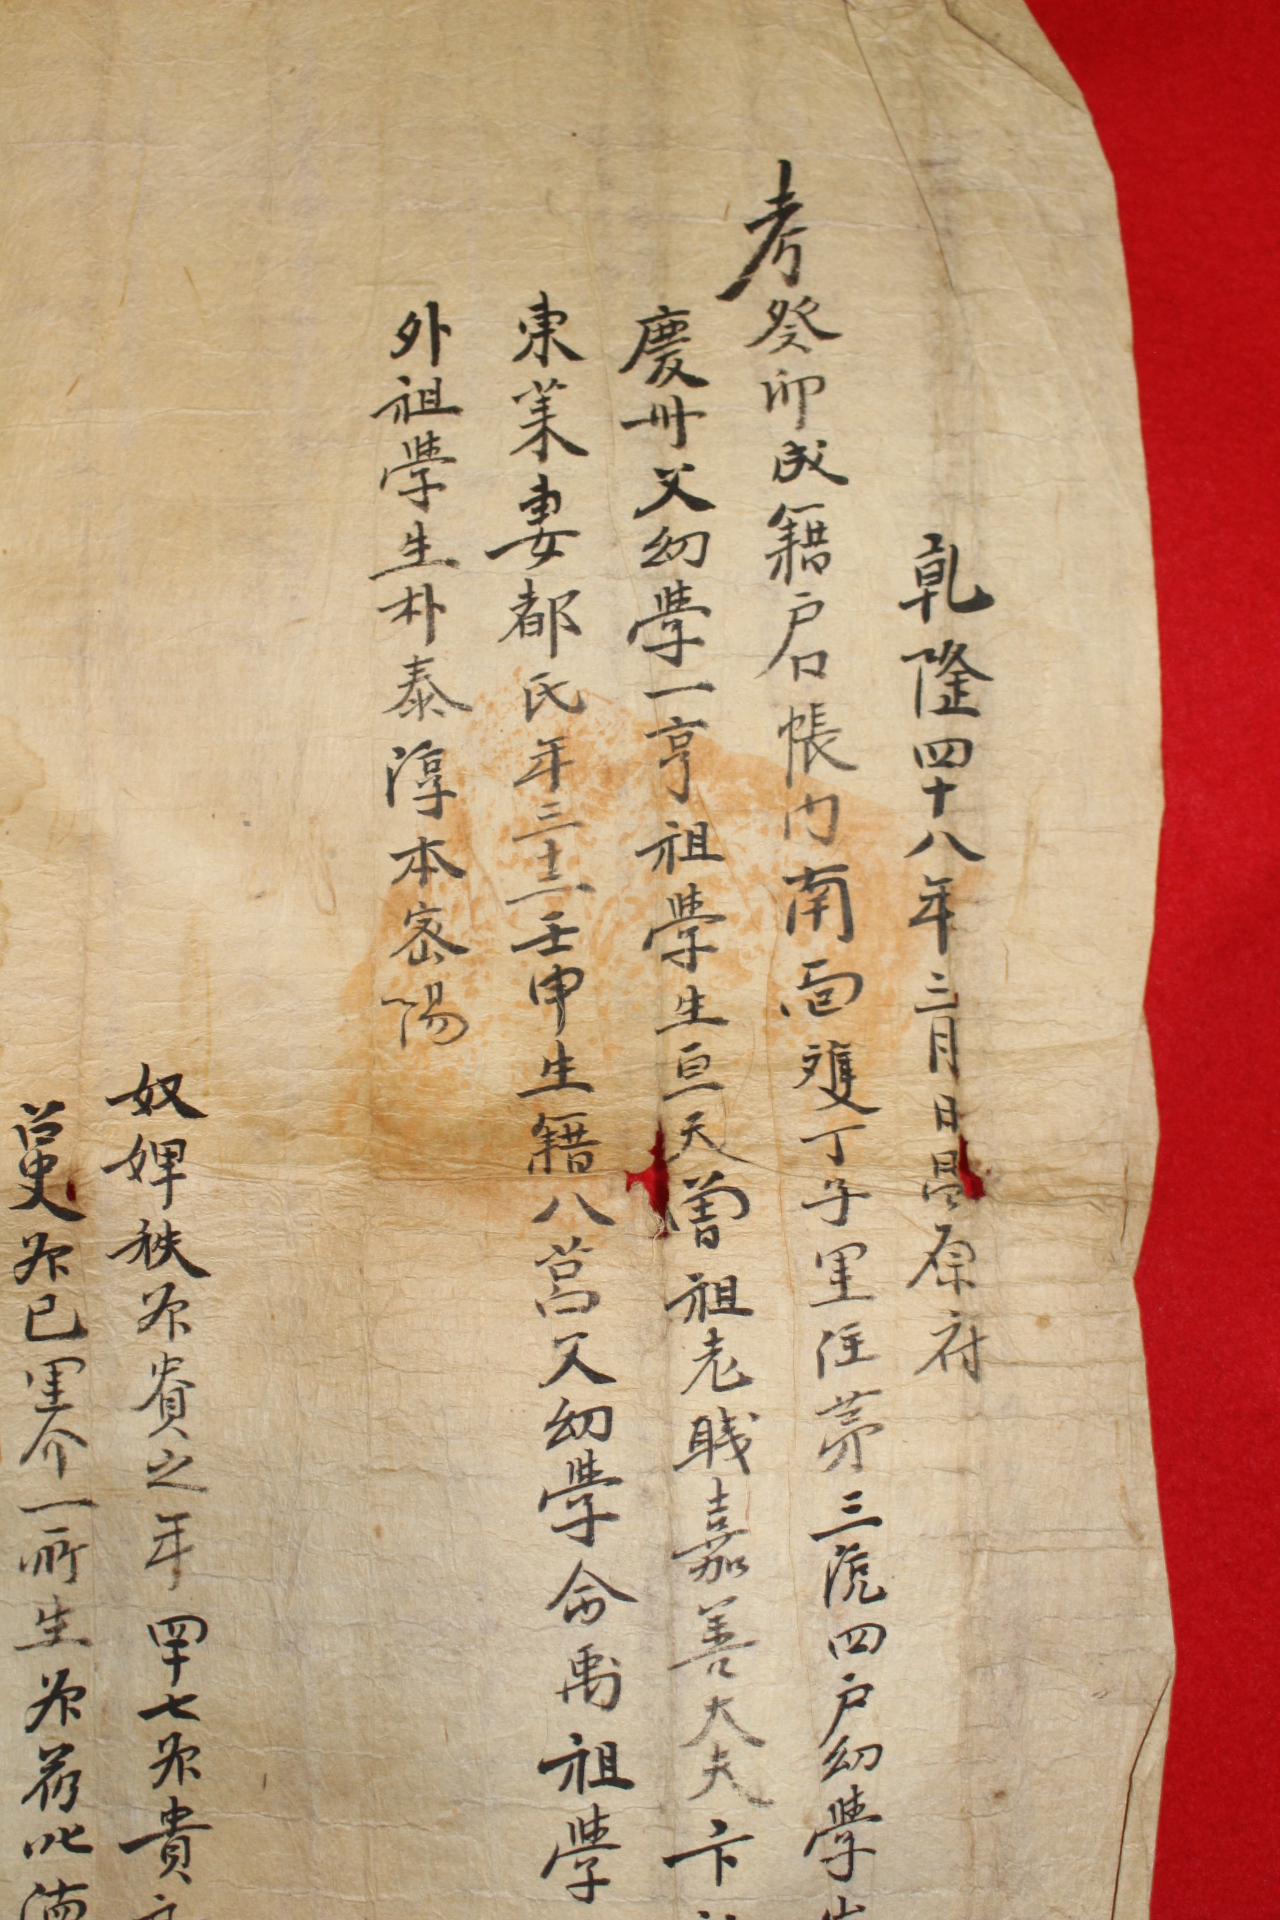 乾隆四十八年三月日昌原府
考癸卯成籍戶口帳內南面雙丁子里住第三統四戶幼學
慶州父幼學一亨祖學生亘天曾祖老職嘉善大夫
東萊妻都氏年三十二壬申生籍八莒父幼學命禹祖學
外祖學生朴泰淳本密陽
奴婢秩奴貴之年四十七奴貴
召史奴己里介一所生奴